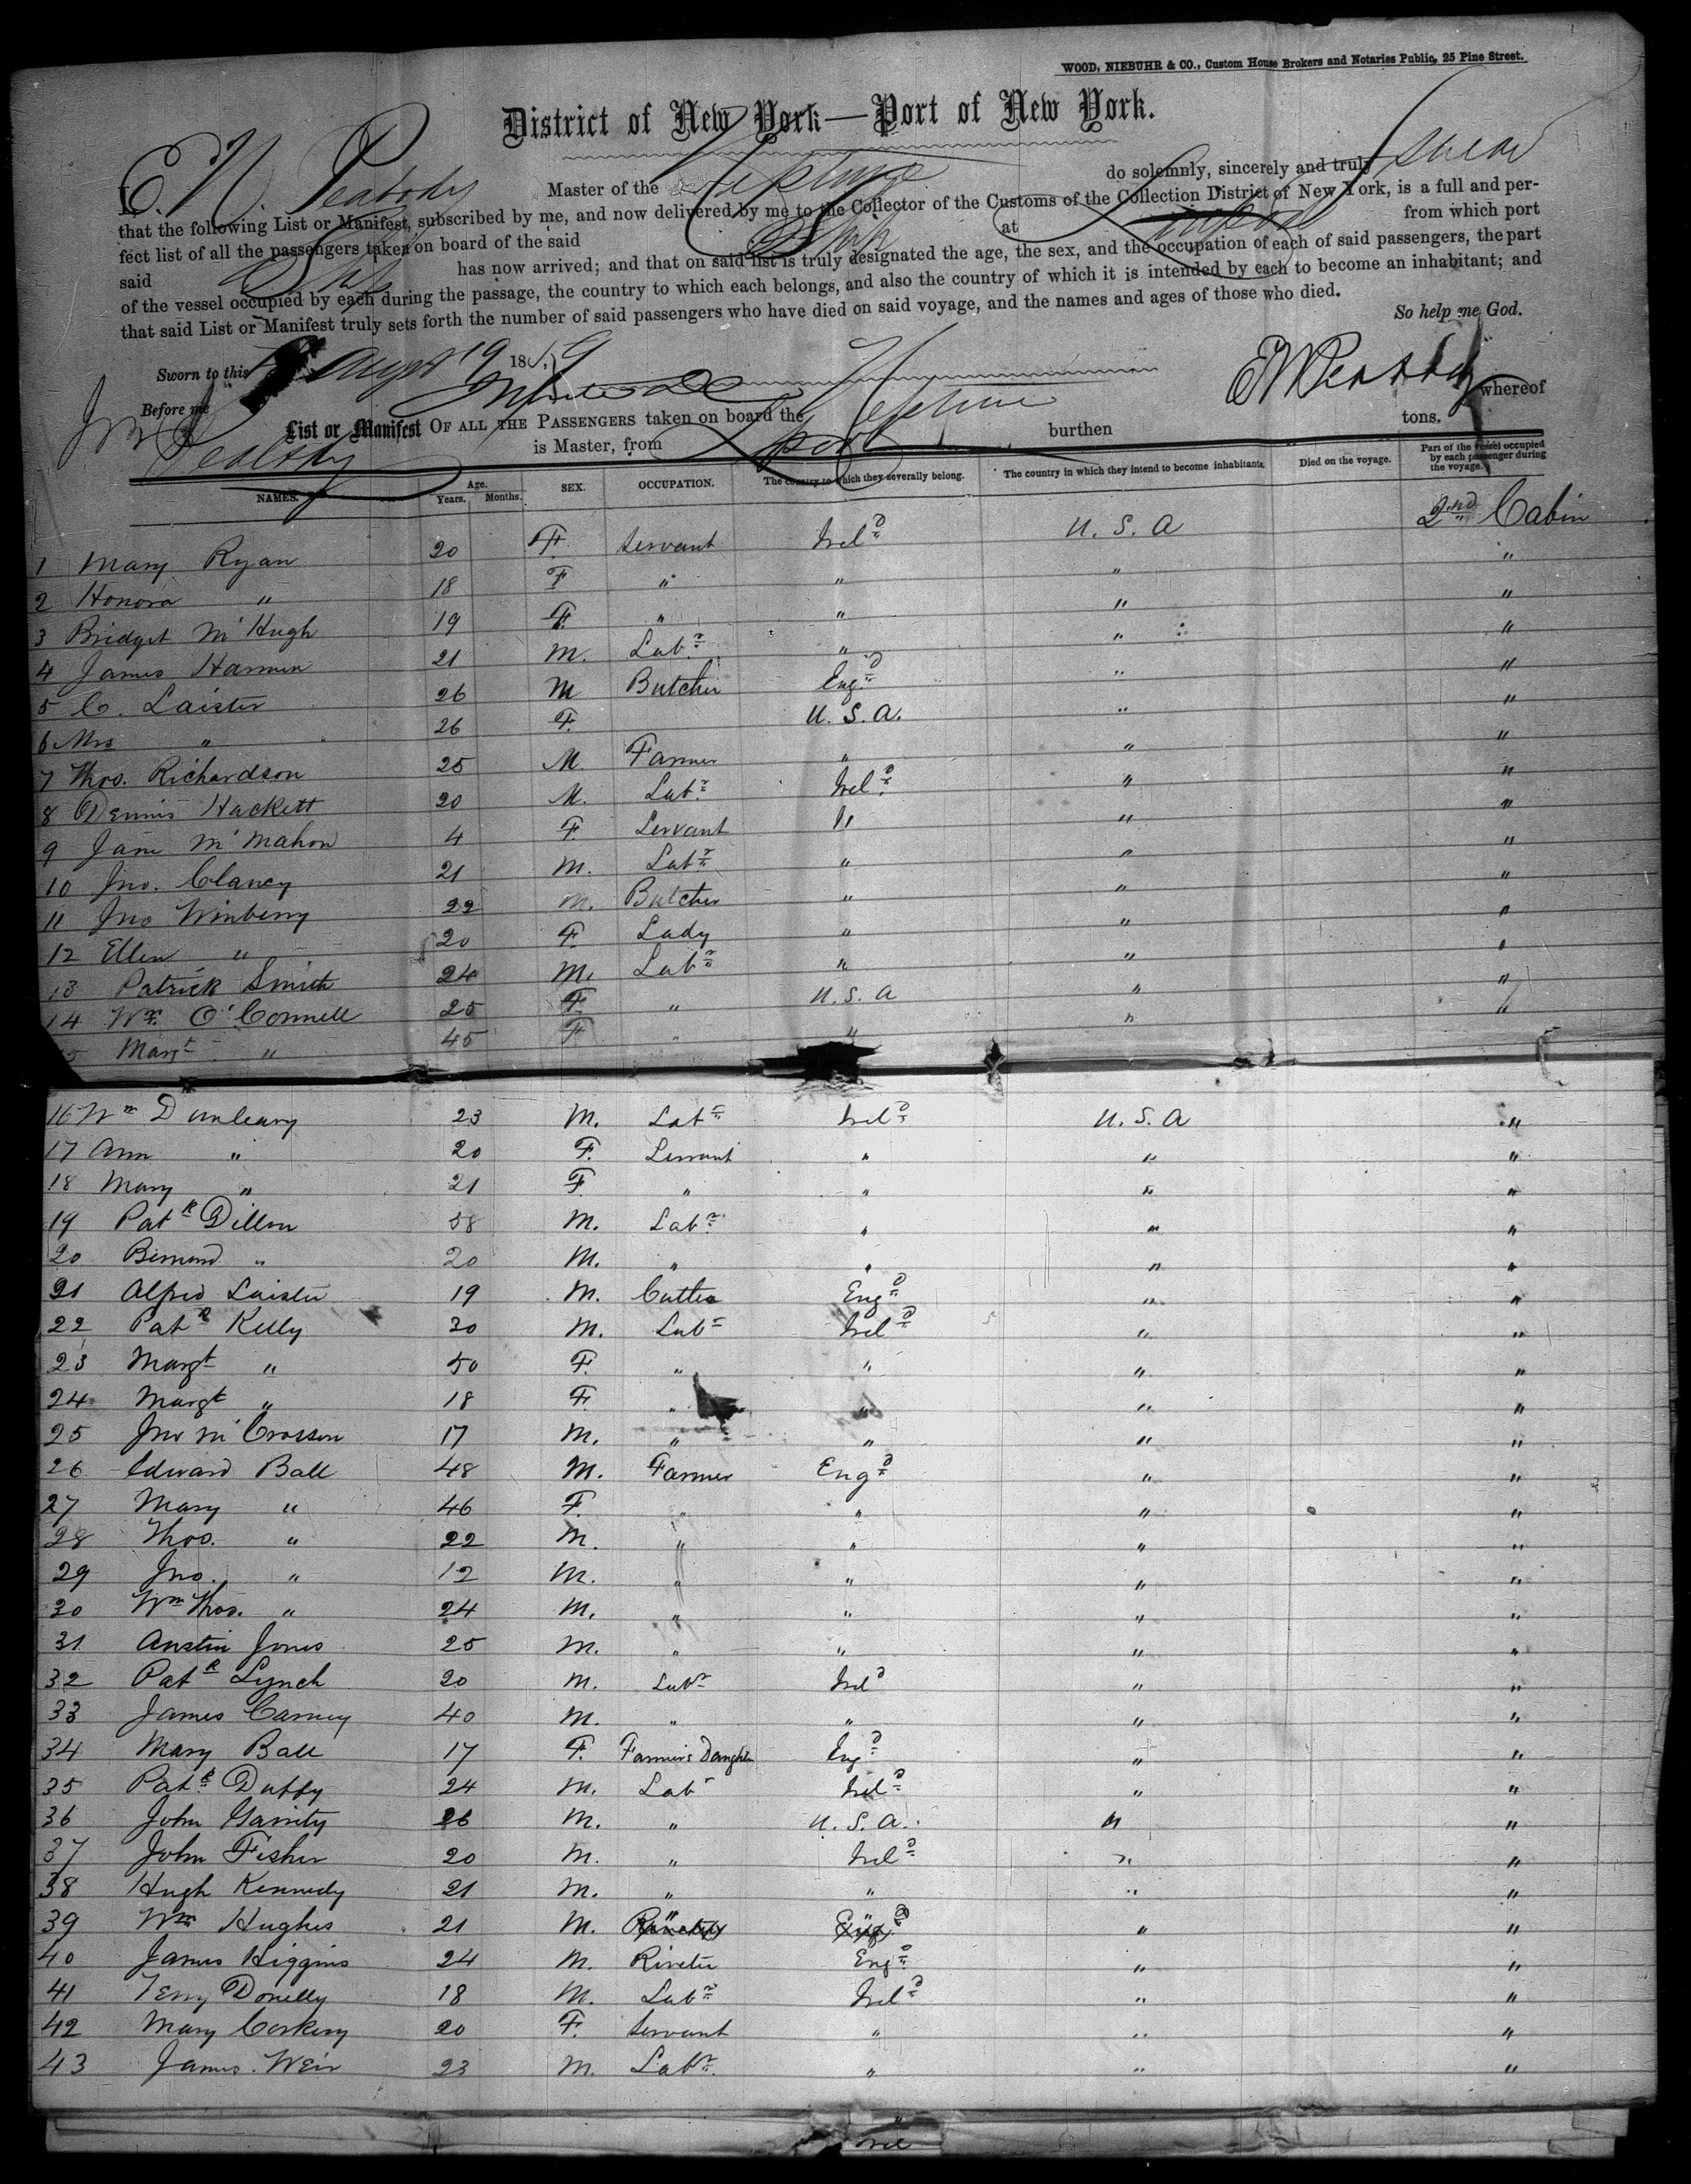 WOOD, NIEBUHR & CO., Custom House Brokers and Notaries Public, 25 Pine Street.
District of New York—Port of New York.
I, E. W. Peabody Master of the Ship Neptune do solemnly, sincerely and truly swear
that the following List or Manifest, subscribed by me, and now delivered by me to the Collector of the Customs of the Collection District of New York, is a full and per-
fect list of all the passengers taken on board of the said Ship at Liverpool from which port
said Ship has now arrived; and that on said list is truly designated the age, the sex, and the occupation of each of said passengers, the part
of the vessel occupied by each during the passage, the country to which each belongs, and also the country of which it is intended by each to become an inhabitant; and
that said List or Manifest truly sets forth the number of said passengers who have died on said voyage, and the names and ages of those who died.
So help me God.
Sworn to this Augt 19 1859
EW Peabody
Before me
List or Manifest OF ALL THE PASSENGERS taken on board the Neptune whereof
Peabody is Master, from Lpool burthen tons.
NAMES. Age. Years. Months. SEX. OCCUPATION. The country to which they severally belong. The country in which they intend to become inhabitants. Died on the voyage. Part of the vessel occupied by each passenger during the voyage.
1 Mary Ryan 20 F. Servant Irel.d U. S. A 2nd Cabin
2 Honora " 18 F " " " "
3 Bridget McHugh 19 F. " " " "
4 James Harmen 21 M. Labr " " "
5 C. Laister 26 M Butcher Engd " "
6 Mrs " 26 F. U. S. A. " "
7 Thos. Richardson 25 M Farmer " " "
8 Dennis Hackett 20 M. Labr Ireld " "
9 Jane McMahon 4 F. Servant " " "
10 Jno. Clancy 21 M. Labr " " "
11 Jno Winberry 22 M. Butcher " " "
12 Ellen " 20 F. Lady " " "
13 Patrick Smith 24 M. Labr " " "
14 Wm O'Connell 25 F. " U. S. A " "
5 Margt " 45 F " " " "
16 Wm Dunleavy 23 M. Labr Ireld U. S. A "
17 Ann " 20 F. Servant " " "
18 Mary " 21 F. " " " "
19 Patk Dillon 58 M. Labr " " "
20 " 20 M. " " " "
21 Alfred Laister 19 M. Cutler Engd " "
22 Patk Kelly 30 M. Labr Ireld " "
23 Margt " 50 F. " " " "
24 Margt " 18 F. " " " "
25 Jno McCrossen 17 M. " " " "
26 Edward Ball 48 M. Farmer Engd " "
27 Mary " 46 F. " " " "
28 Thos. " 22 M. " " " "
29 Jno. " 12 M. " " " "
30 Wm Thos. " 24 M. " " " "
31 Austin Jones 25 M. " " " "
32 Patk Lynch 20 M. Labr Ireld " "
33 James Carney 40 M. " " " "
34 Mary Ball 17 F. Farmer's Daughter Engd " "
35 Patk Duffy 24 M. Labr Ireld " "
36 John Garrity 26 M. " U. S. A. " "
37 John Fisher 20 M. " Ireld " "
38 Hugh Kennedy 21 M. " " " "
39 Wm Hughes 21 M. " " " "
40 James Higgins 24 M. Riveter Engd " "
41 Terry Donelly 18 M. Labr Ireld " "
42 Mary Corkery 20 F. Servant " " "
43 James Weir 23 M. Labr " " "